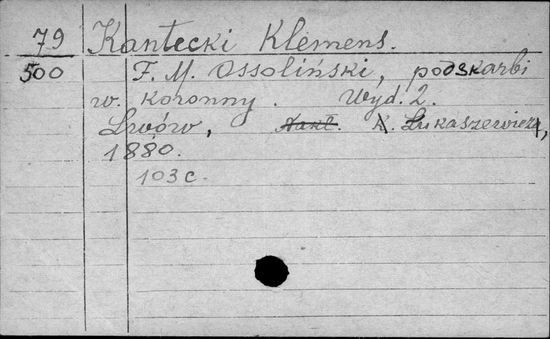 79 Kantecki Klemens.
500 F. M. Ossoliński, podskarbi
w. koronny. Wyd. 2.
Lwów, Nakł. K. Łukaszewicza,
1880.
103 c.